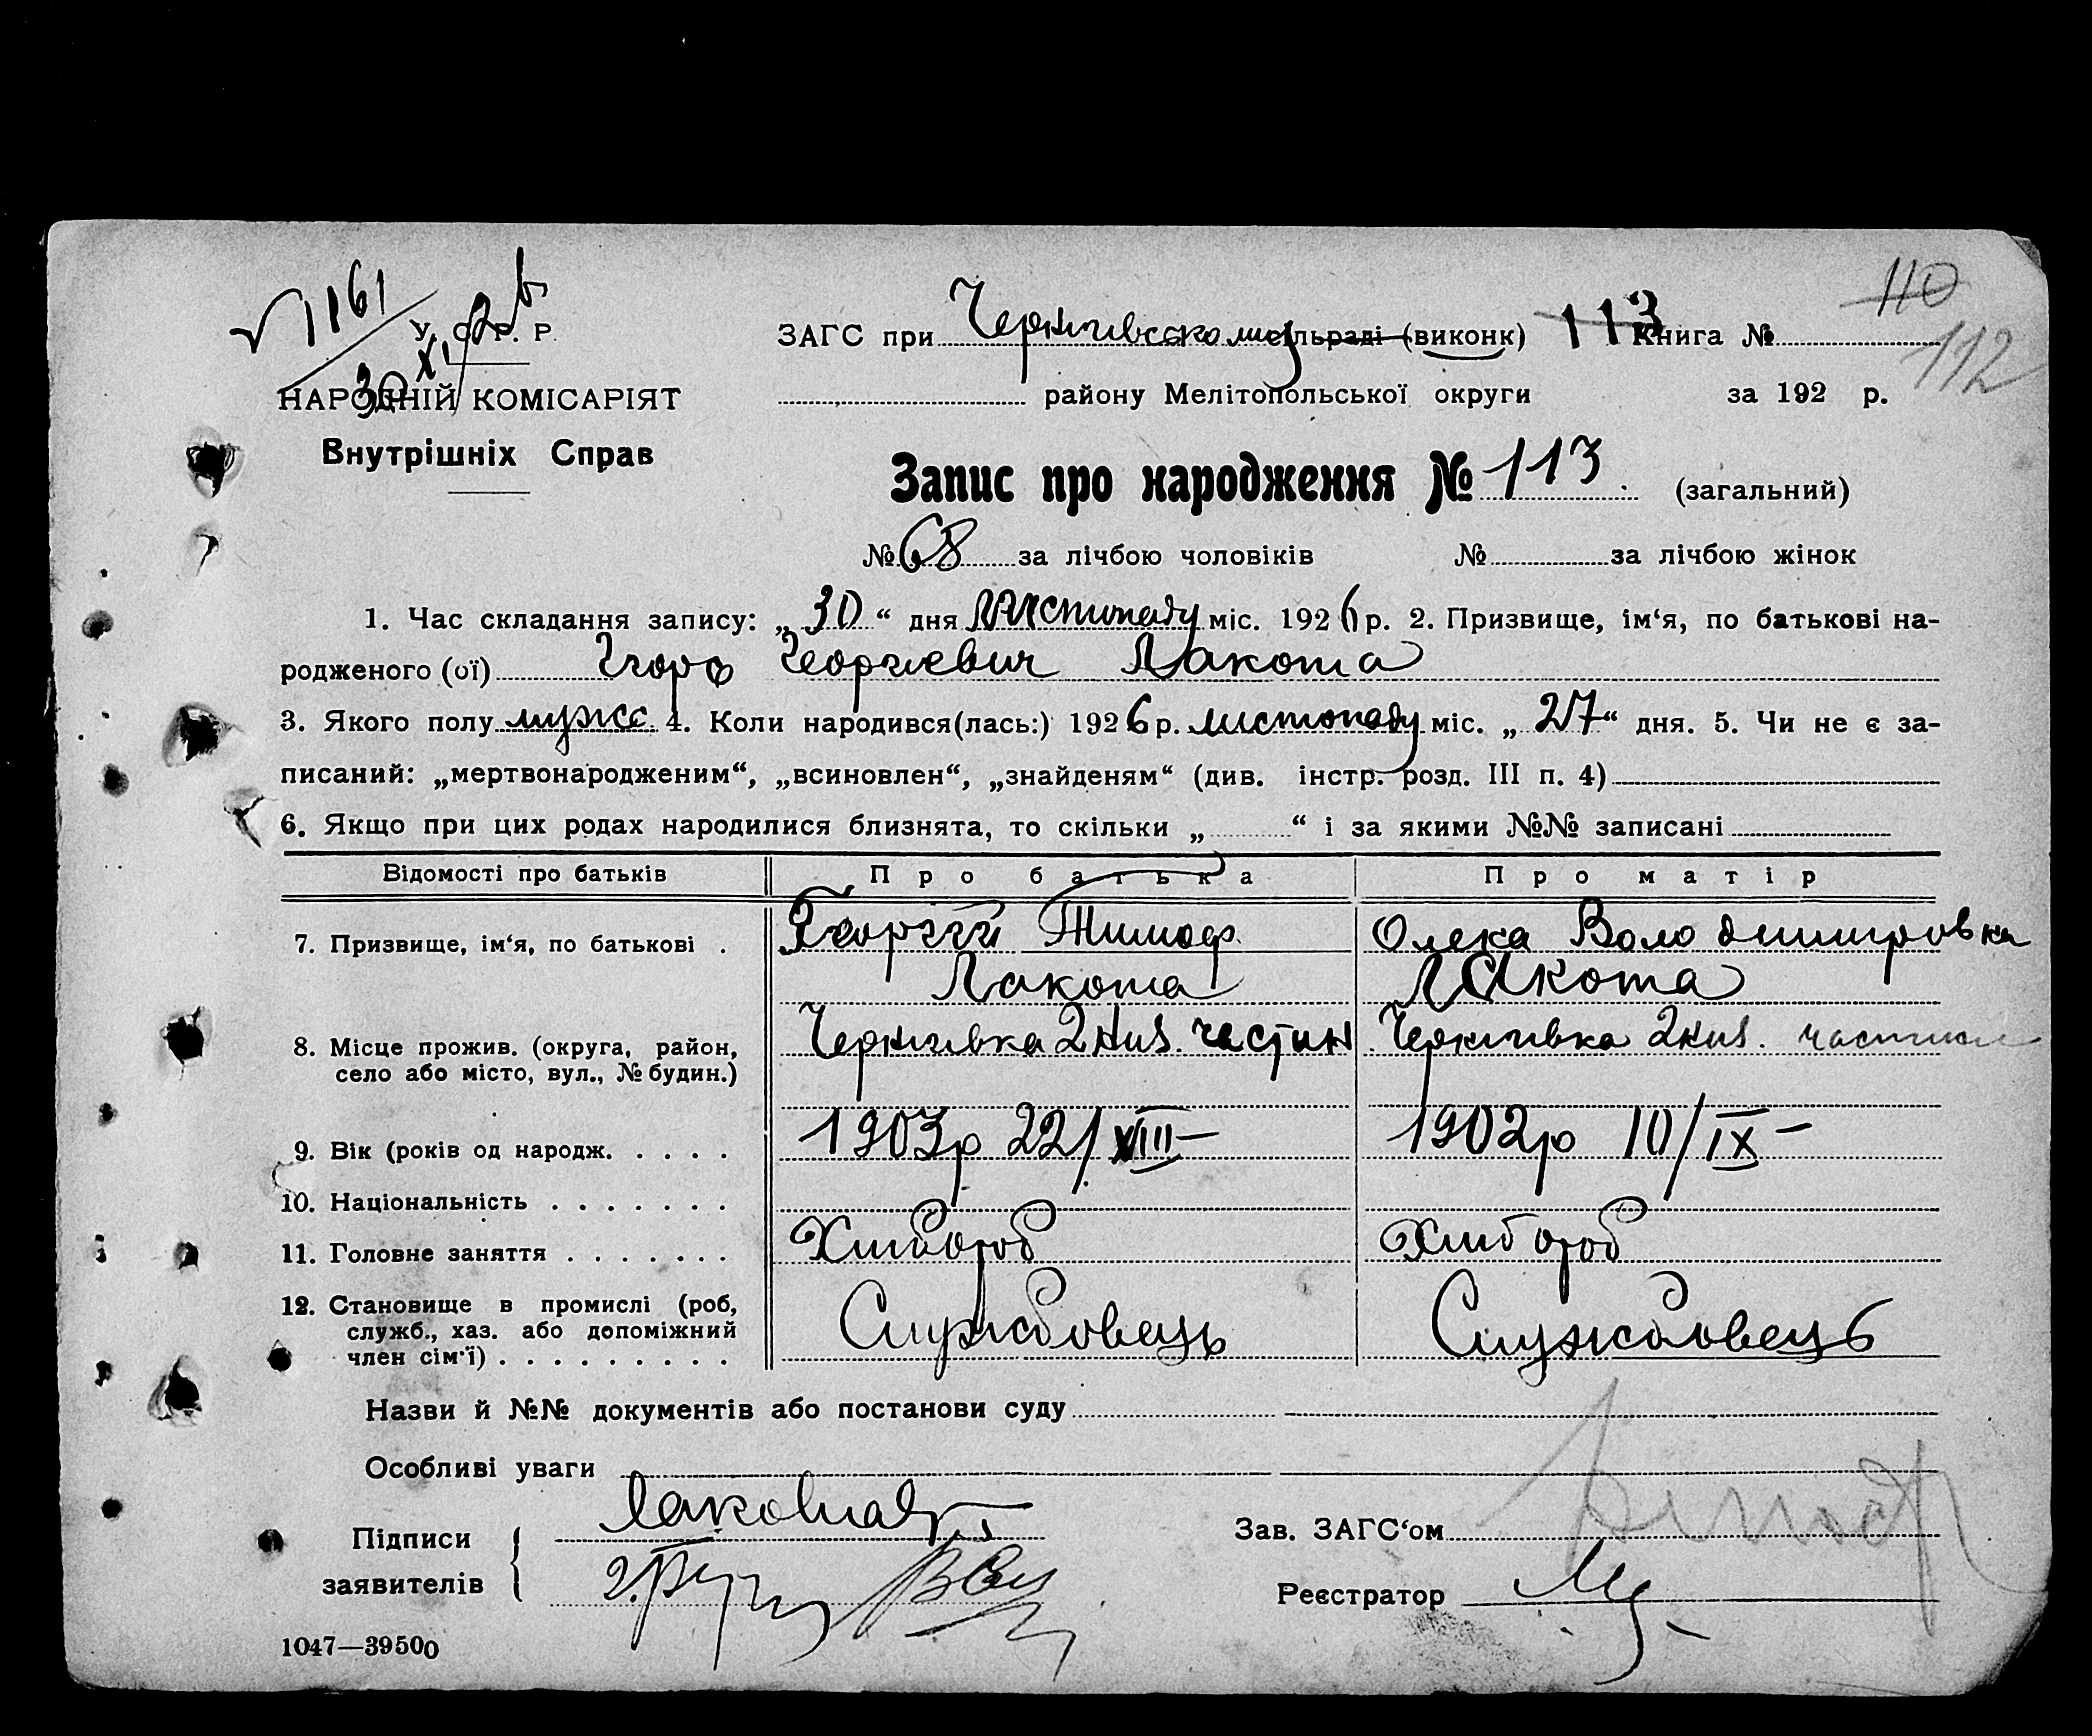 1161
30/XI 26
110
112
У. С. Р. Р.
НАРОДНІЙ КОМІСАРІЯТ
Внутрішніх Справ
ЗАГС при Чернигвському сільраді (виконк) 113 Книга №
району Мелітопольської округи за 192 р.
Запис про народження № 113. (загальний)
№ 68 за лічбою чоловіків № за лічбою жінок
1. Час складання запису: „ 30 “ дня Листопаду міс. 1926 р. 2. Призвище, ім‘я, по батькові на-
родженого (ої) Ігорь Георгієвич Лакота
3. Якого полу мужс. 4. Коли народився(лась:) 1926 р. листопаду міс. „ 27 “ дня. 5. Чи не є за-
писаний: „мертвонародженим“, „всиновлен“, „знайденям“ (див. інстр. розд. III п. 4)
6. Якщо при цих родах народилися близнята, то скільки „ “ і за якими №№ записані
Відомості про батьків Про батька Про матір
7. Призвище, ім‘я, по батькові . Георгій Тимоф. Олека Володимировка
Лакота Лакота
8. Місце прожив. (округа, район, Чернигвка 2 Чернигвка 2
село або місто, вул., № будин.)
9. Вік (років од народж. . . . . 1903р 22/VIII– 1902р 10/IX–
10. Національність . . . . . . .
11. Головне заняття . . . . . . . Хлибороб Хлибороб
12. Становище в промислі (роб, Службовець Службовець
служб., хаз. або допоміжний
член сім‘ї) . . . . . . . . .
Назви й №№ документів або постанови суду
Особливі уваги
Підписи Лакота Зав. ЗАГС‘ом
заявителів Реєстратор
1047—39500